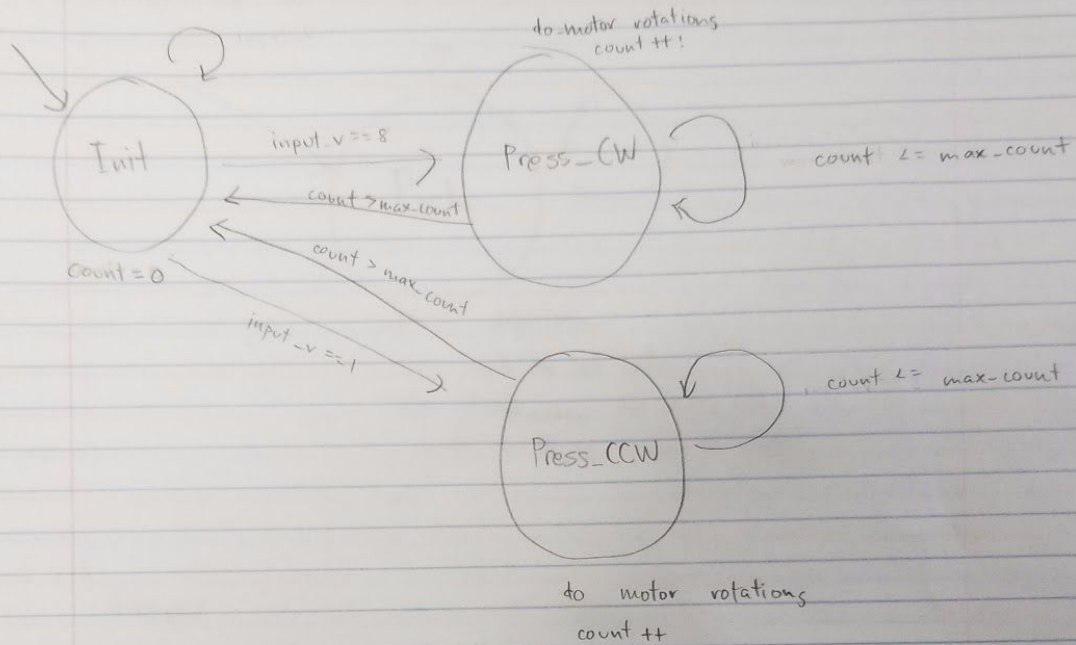 do motor rotations
count ++;
Init
input_v==8
Press_CW
count <= max_count
count > max_count
count = 0
count > max_count
input_v==1
Press_CCW
count <= max-count
do motor rotations
count ++